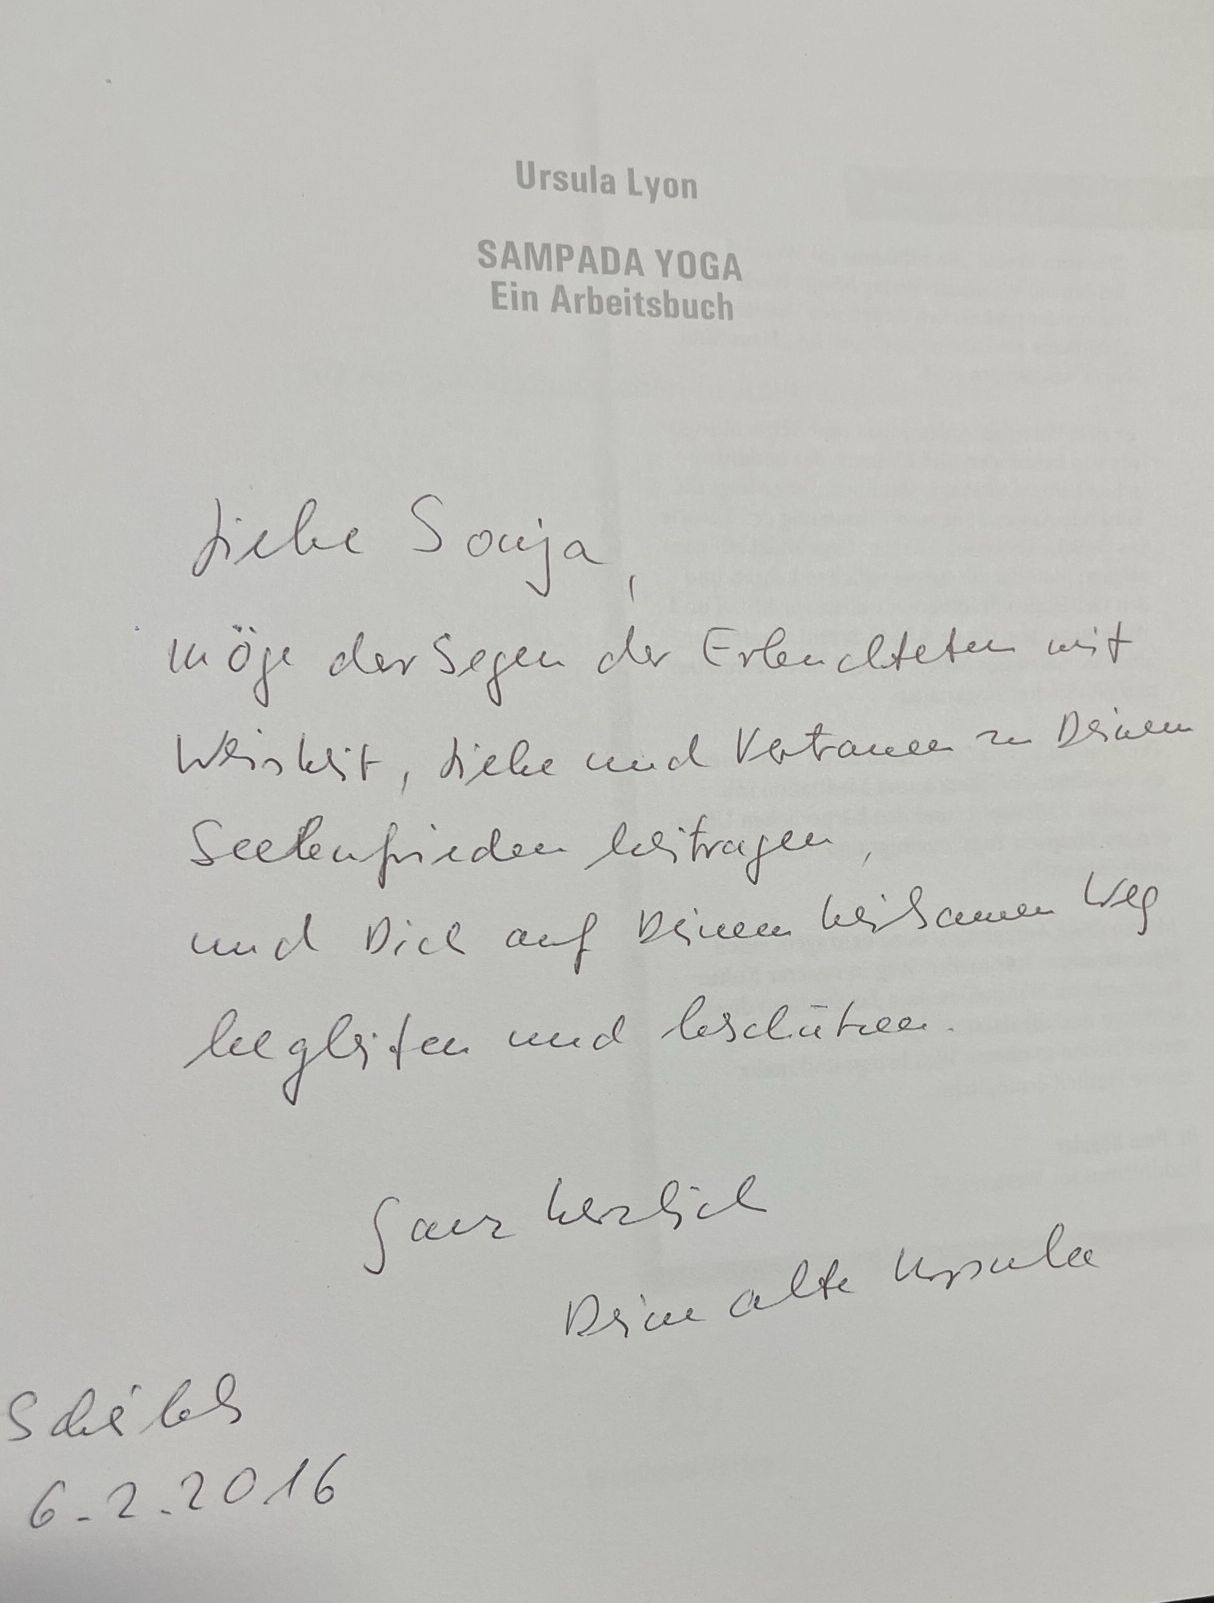 Ursula Lyon
SAMPADA YOGA
Ein Arbeitsbuch
Liebe Sonja,
möge der Segen der Erleuchteten mit
Weisheit, Liebe und Vertrauen zu Deinem
Seelenfrieden beitragen,
und Dich auf Deinem heilsamen Weg
begleiten und beschützen.
Ganz herzlich
Deine alte Ursula
Scheibbs
6.2.2016